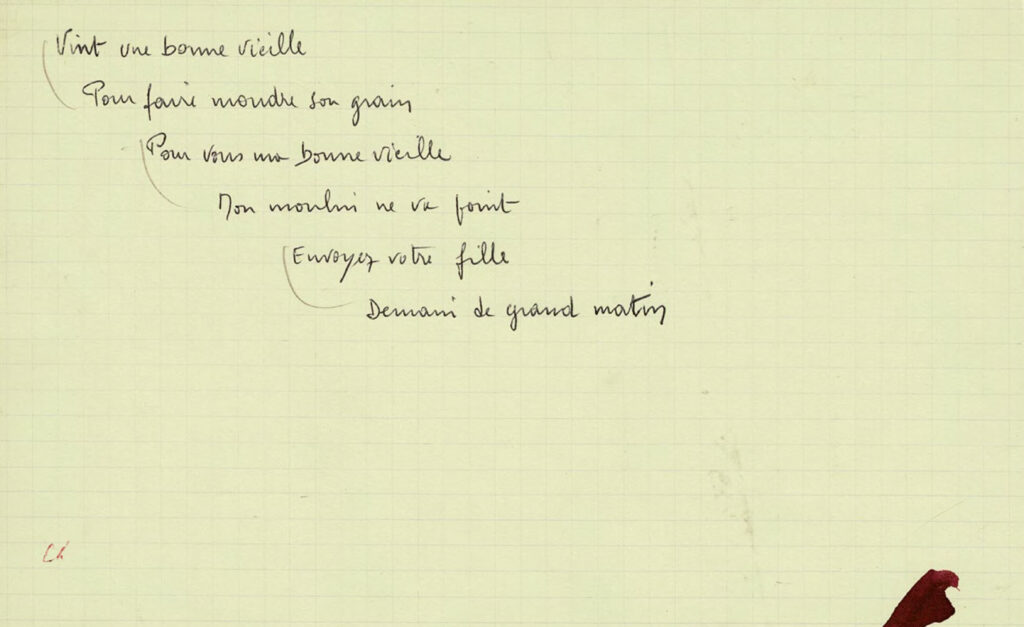 Vint une bonne vieille
Pour faire moudre son grain
Pour vous ma bonne vieille
Mon moulin ne va point
Envoyez votre fille
Demain de grand matin